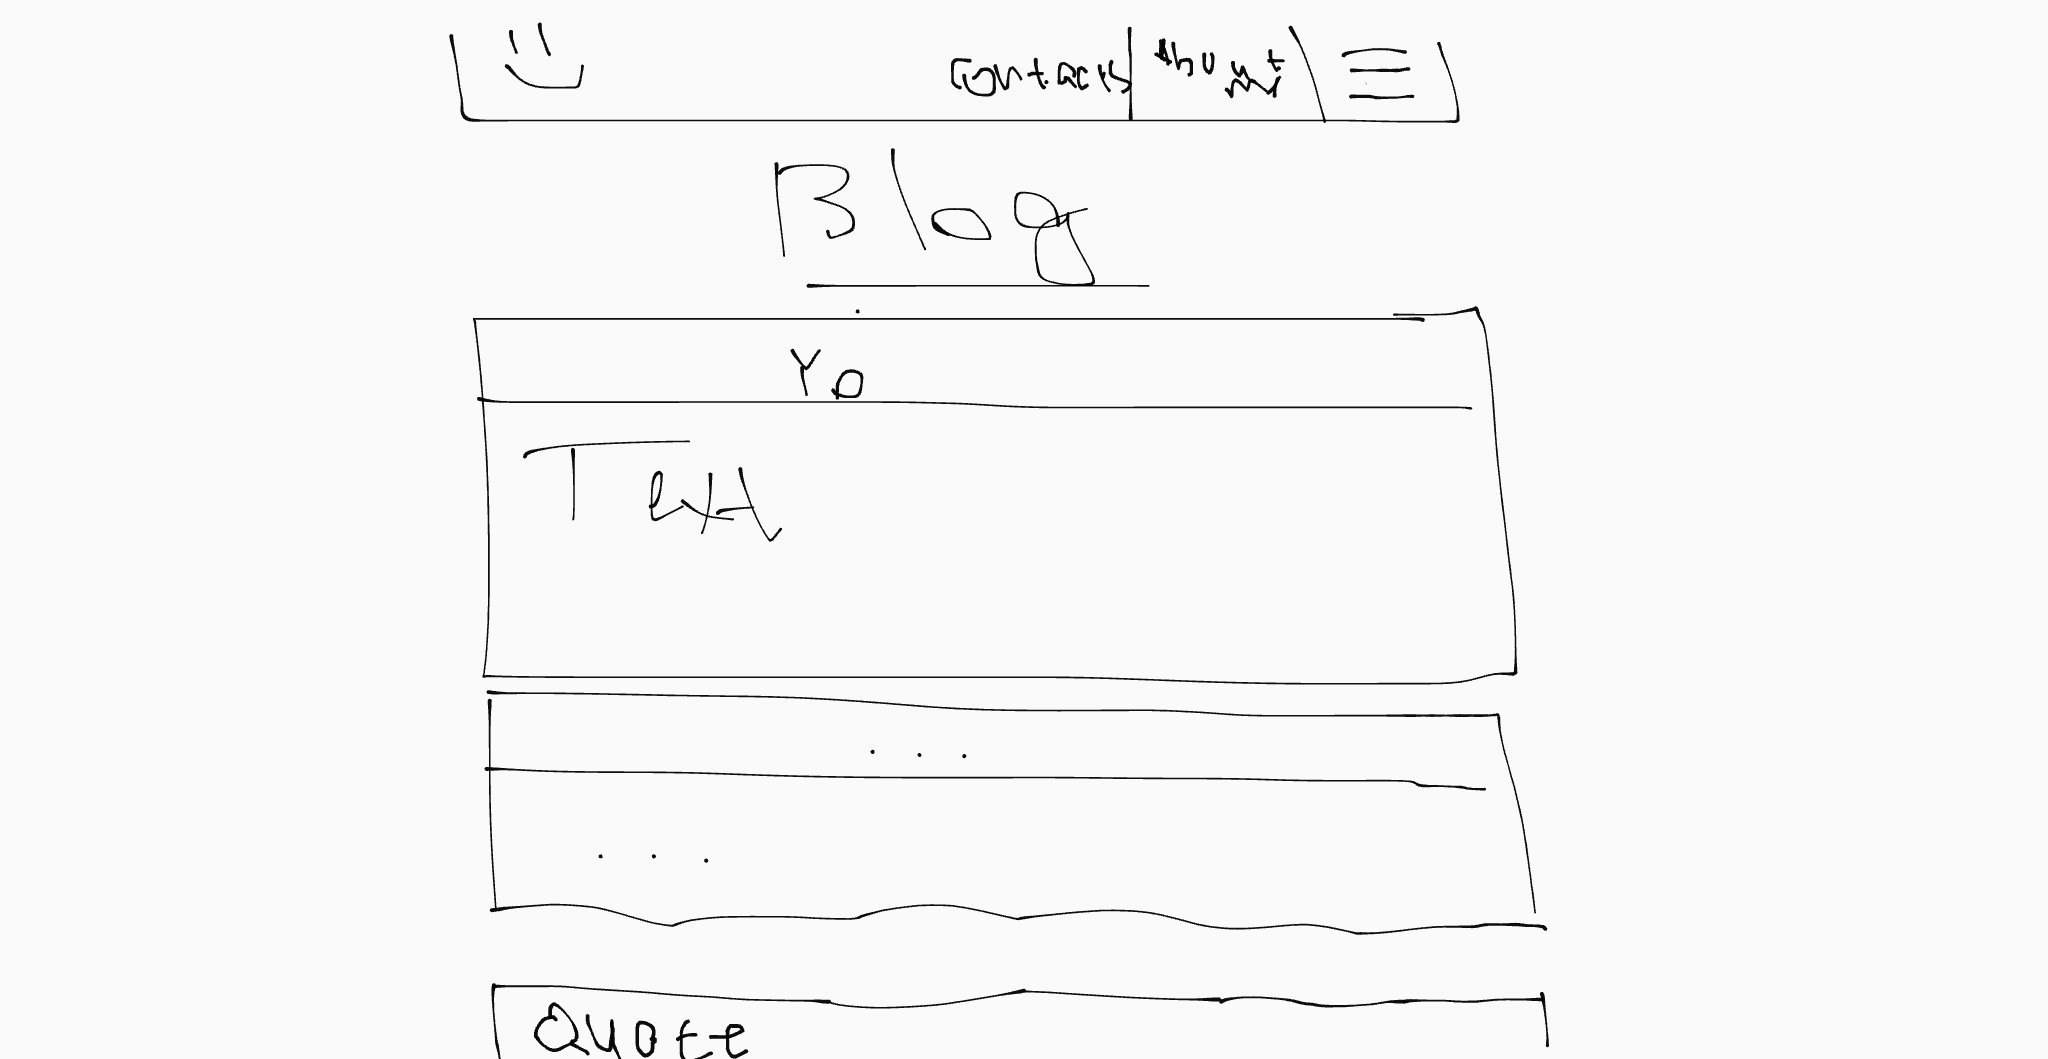 Contacts About
Blog
Yo
Text
. . .
. . .
Quote